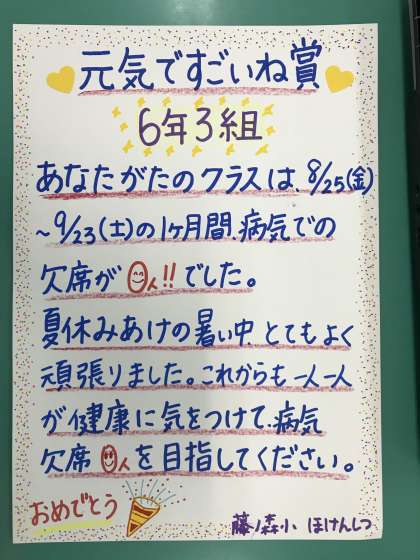 元気ですごいね賞
6年3組
あなたがたのクラスは、8/25(金)
~9/23(土)の1ヶ月間、病気での
欠席が0人!!でした。
夏休みあけの暑い中、とてもよく
頑張りました。これからも一人一人
が健康に気をつけて、病気
欠席0人を目指してください。
おめでとう
藤ノ森小 ほけんしつ